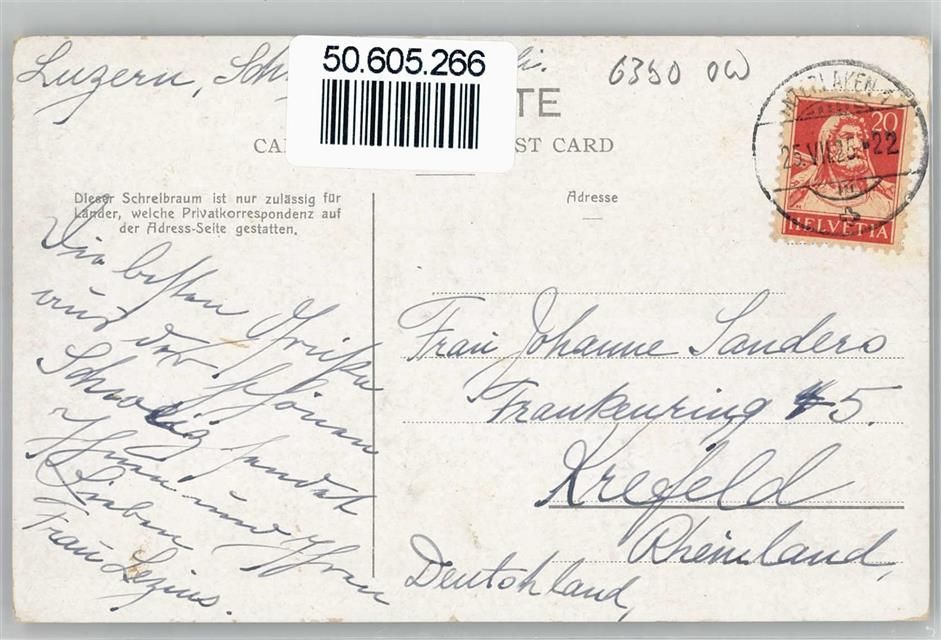 Luzern,
50.605.266
6390 OW
TE
CA
ST CARD
Dieser Schreibraum ist nur zulässig für
Länder, welche Privatkorrespondenz auf
der Adress-Seite gestatten.
Adresse
20
22
HELVETIA
Die besten Grüße
aus der schönen
Schweiz sendet
Ihnen und Ihren
Lieben
Frau Lezius.
Frau Johanne Sanders
Frankenring 5.
Krefeld
Rheinland,
Deutschland,